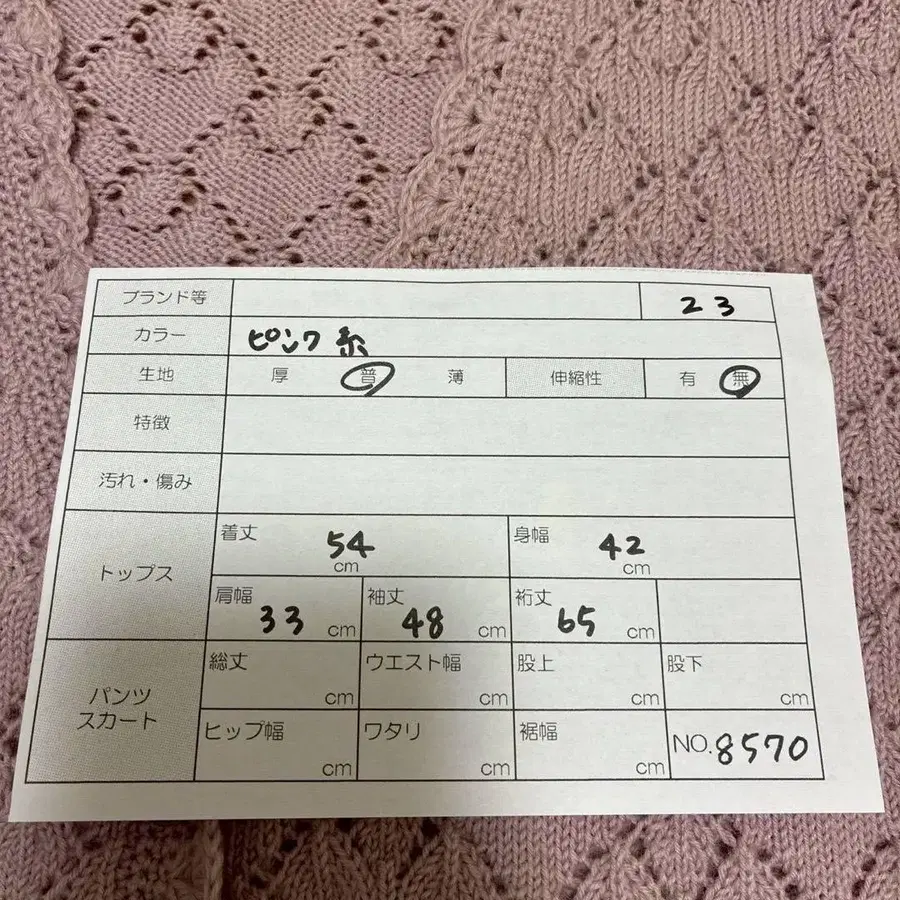 ブランド等 23
カラー ピンク系
生地 厚 普 薄 伸縮性 有 無
特徴
汚れ・傷み
トップス
着丈 54 cm 身幅 42 cm
肩幅 33 cm 袖丈 48 cm 裄丈 65 cm
パンツ
スカート
総丈 cm ウエスト幅 cm 股上 cm 股下 cm
ヒップ幅 cm ワタリ cm 裾幅 cm NO.8570